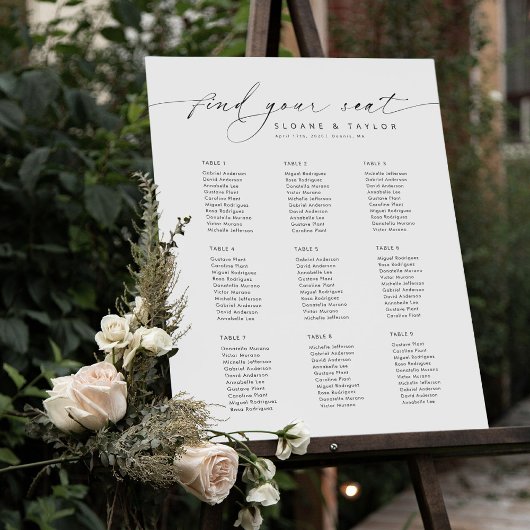 find your seat
SLOANE & TAYLOR
April 17th, 2020 | Dennis, MA
TABLE 1
Gabriel Anderson
David Anderson
Annabelle Lee
Gustave Plant
Caroline Plant
Miguel Rodriguez
Rosa Rodriguez
Donatella Murano
Victor Murano
Michelle Jefferson
TABLE 2
Miguel Rodriguez
Rosa Rodriguez
Donatella Murano
Victor Murano
Michelle Jefferson
Gabriel Anderson
David Anderson
Annabelle Lee
Gustave Plant
Caroline Plant
TABLE 3
Michelle Jefferson
Gabriel Anderson
David Anderson
Annabelle Lee
Gustave Plant
Caroline Plant
Miguel Rodriguez
Rosa Rodriguez
Donatella Murano
Victor Murano
TABLE 4
Gustave Plant
Caroline Plant
Miguel Rodriguez
Rosa Rodriguez
Donatella Murano
Victor Murano
Michelle Jefferson
Gabriel Anderson
David Anderson
Annabelle Lee
TABLE 5
Gabriel Anderson
David Anderson
Annabelle Lee
Gustave Plant
Caroline Plant
Miguel Rodriguez
Rosa Rodriguez
Donatella Murano
Victor Murano
Michelle Jefferson
TABLE 6
Miguel Rodriguez
Rosa Rodriguez
Donatella Murano
Victor Murano
Michelle Jefferson
Gabriel Anderson
David Anderson
Annabelle Lee
Gustave Plant
Caroline Plant
TABLE 7
Donatella Murano
Victor Murano
Michelle Jefferson
Gabriel Anderson
David Anderson
Annabelle Lee
Gustave Plant
Caroline Plant
Miguel Rodriguez
Rosa Rodriguez
TABLE 8
Michelle Jefferson
Gabriel Anderson
David Anderson
Annabelle Lee
Gustave Plant
Caroline Plant
Miguel Rodriguez
Rosa Rodriguez
Donatella Murano
Victor Murano
TABLE 9
Gustave Plant
Caroline Plant
Miguel Rodriguez
Rosa Rodriguez
Donatella Murano
Victor Murano
Michelle Jefferson
Gabriel Anderson
David Anderson
Annabelle Lee